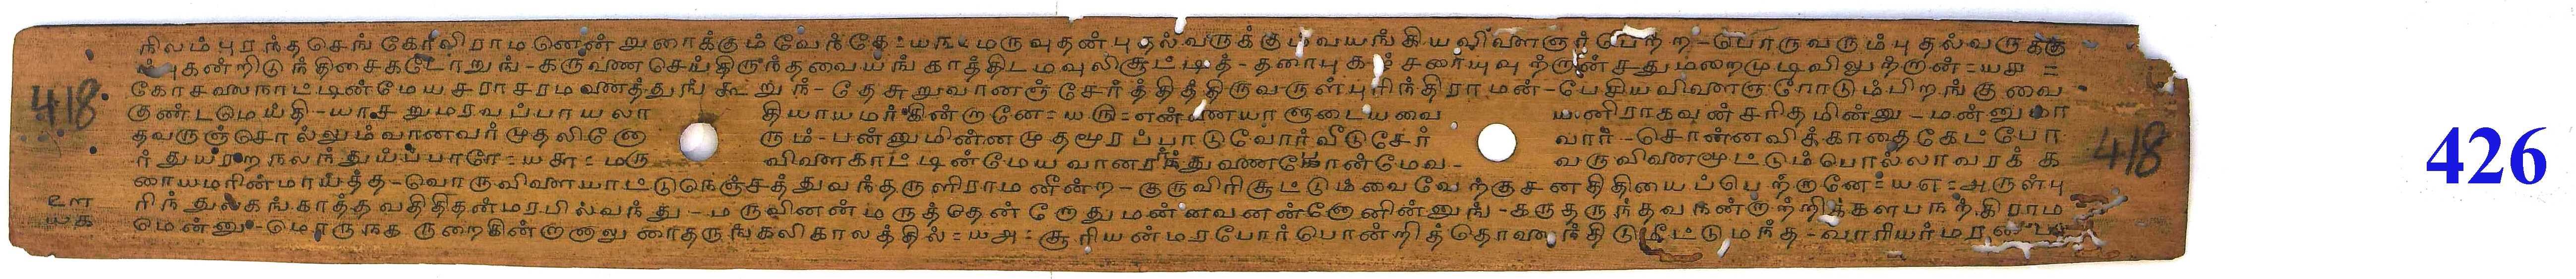 நிலம் புரந்த செங் கோலிராமனென் றுரைக்கும் வேந்தே = யங = மருவுதன் புதல்வருக்கும் வயங்கிய விளைஞர் பெற்ற - பொருவரும் புதல்வருக்கு
புகன்றிடுந்திசைகடோறுங் - கருவணை செய்திருந்தவையங் காத்திட மவுலிசூட்டித் - தனாபு
கோசலநாட்டின்மேய சராசரமனைத்துங் கூறுந் - தேசுறுவானஞ் சேர்த்தித்திருவருள்புரிந்திராமன் - பேசிய விளைஞரோடும் பிறங்கு வை
குண்டமெய்தி - யாசறுமரவப்பாயலா தியாயமர்கின்றானே = யரு = என்னையாளுடையவை யனிராகவன் சரிதமின்னு - மன்னுமா
தவருஞ்சொல்லும் வானவர் முதலினோ ரும் - பன்னுமின்னமுதமூரப்பாடுவோர் வீடுசேர் வார் - சொன்னவிக்காதைகேட்போ
ர் துயரற நலந்துய்ப்பாரே = யசா = மரு வினைகாட்டின்மேய வானரந்துணைகொண்மேவ - வருவினைமூட்டும் பொல்லாவரக் க
ராயமரின்மாய்த்த - வொருவினையாட்டுநெஞ்சத்துவந்தருளிராமனீன்ற - குருவிரிசூட்டும்வைவேற்குசனதிதியைப்பெற்றானே = யஎ = அருள்பு
ரிந்துலகங்காத்த வதிதிதன்மரபில்வந்து - மருவினன் மருத்தென்றோதுமன்னவனன்னோனின்னுங் - கருதருந்தவ
மென்னு - உறைகின்றானலு கலிகாலத்தில் = யஅ = சூரியன்மரபோர்பொன்றித்தொலைந்திடு மந்த - வாரியர்
உள
யக
418
418
426